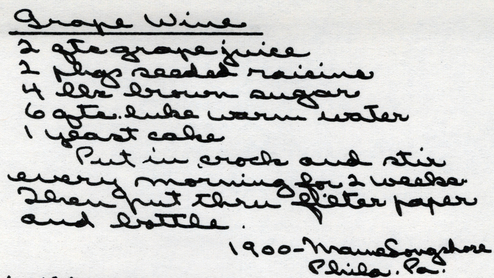 Grape Wine
2 qts grape juice
2 pkgs seeded raisins
4 lbs brown sugar
6 qts. luke warm water
1 yeast cake
Put in crock and stir
every morning for 2 weeks
Then put thru filter paper
and bottle.
1900-Mame Longshore
Phila. Pa.